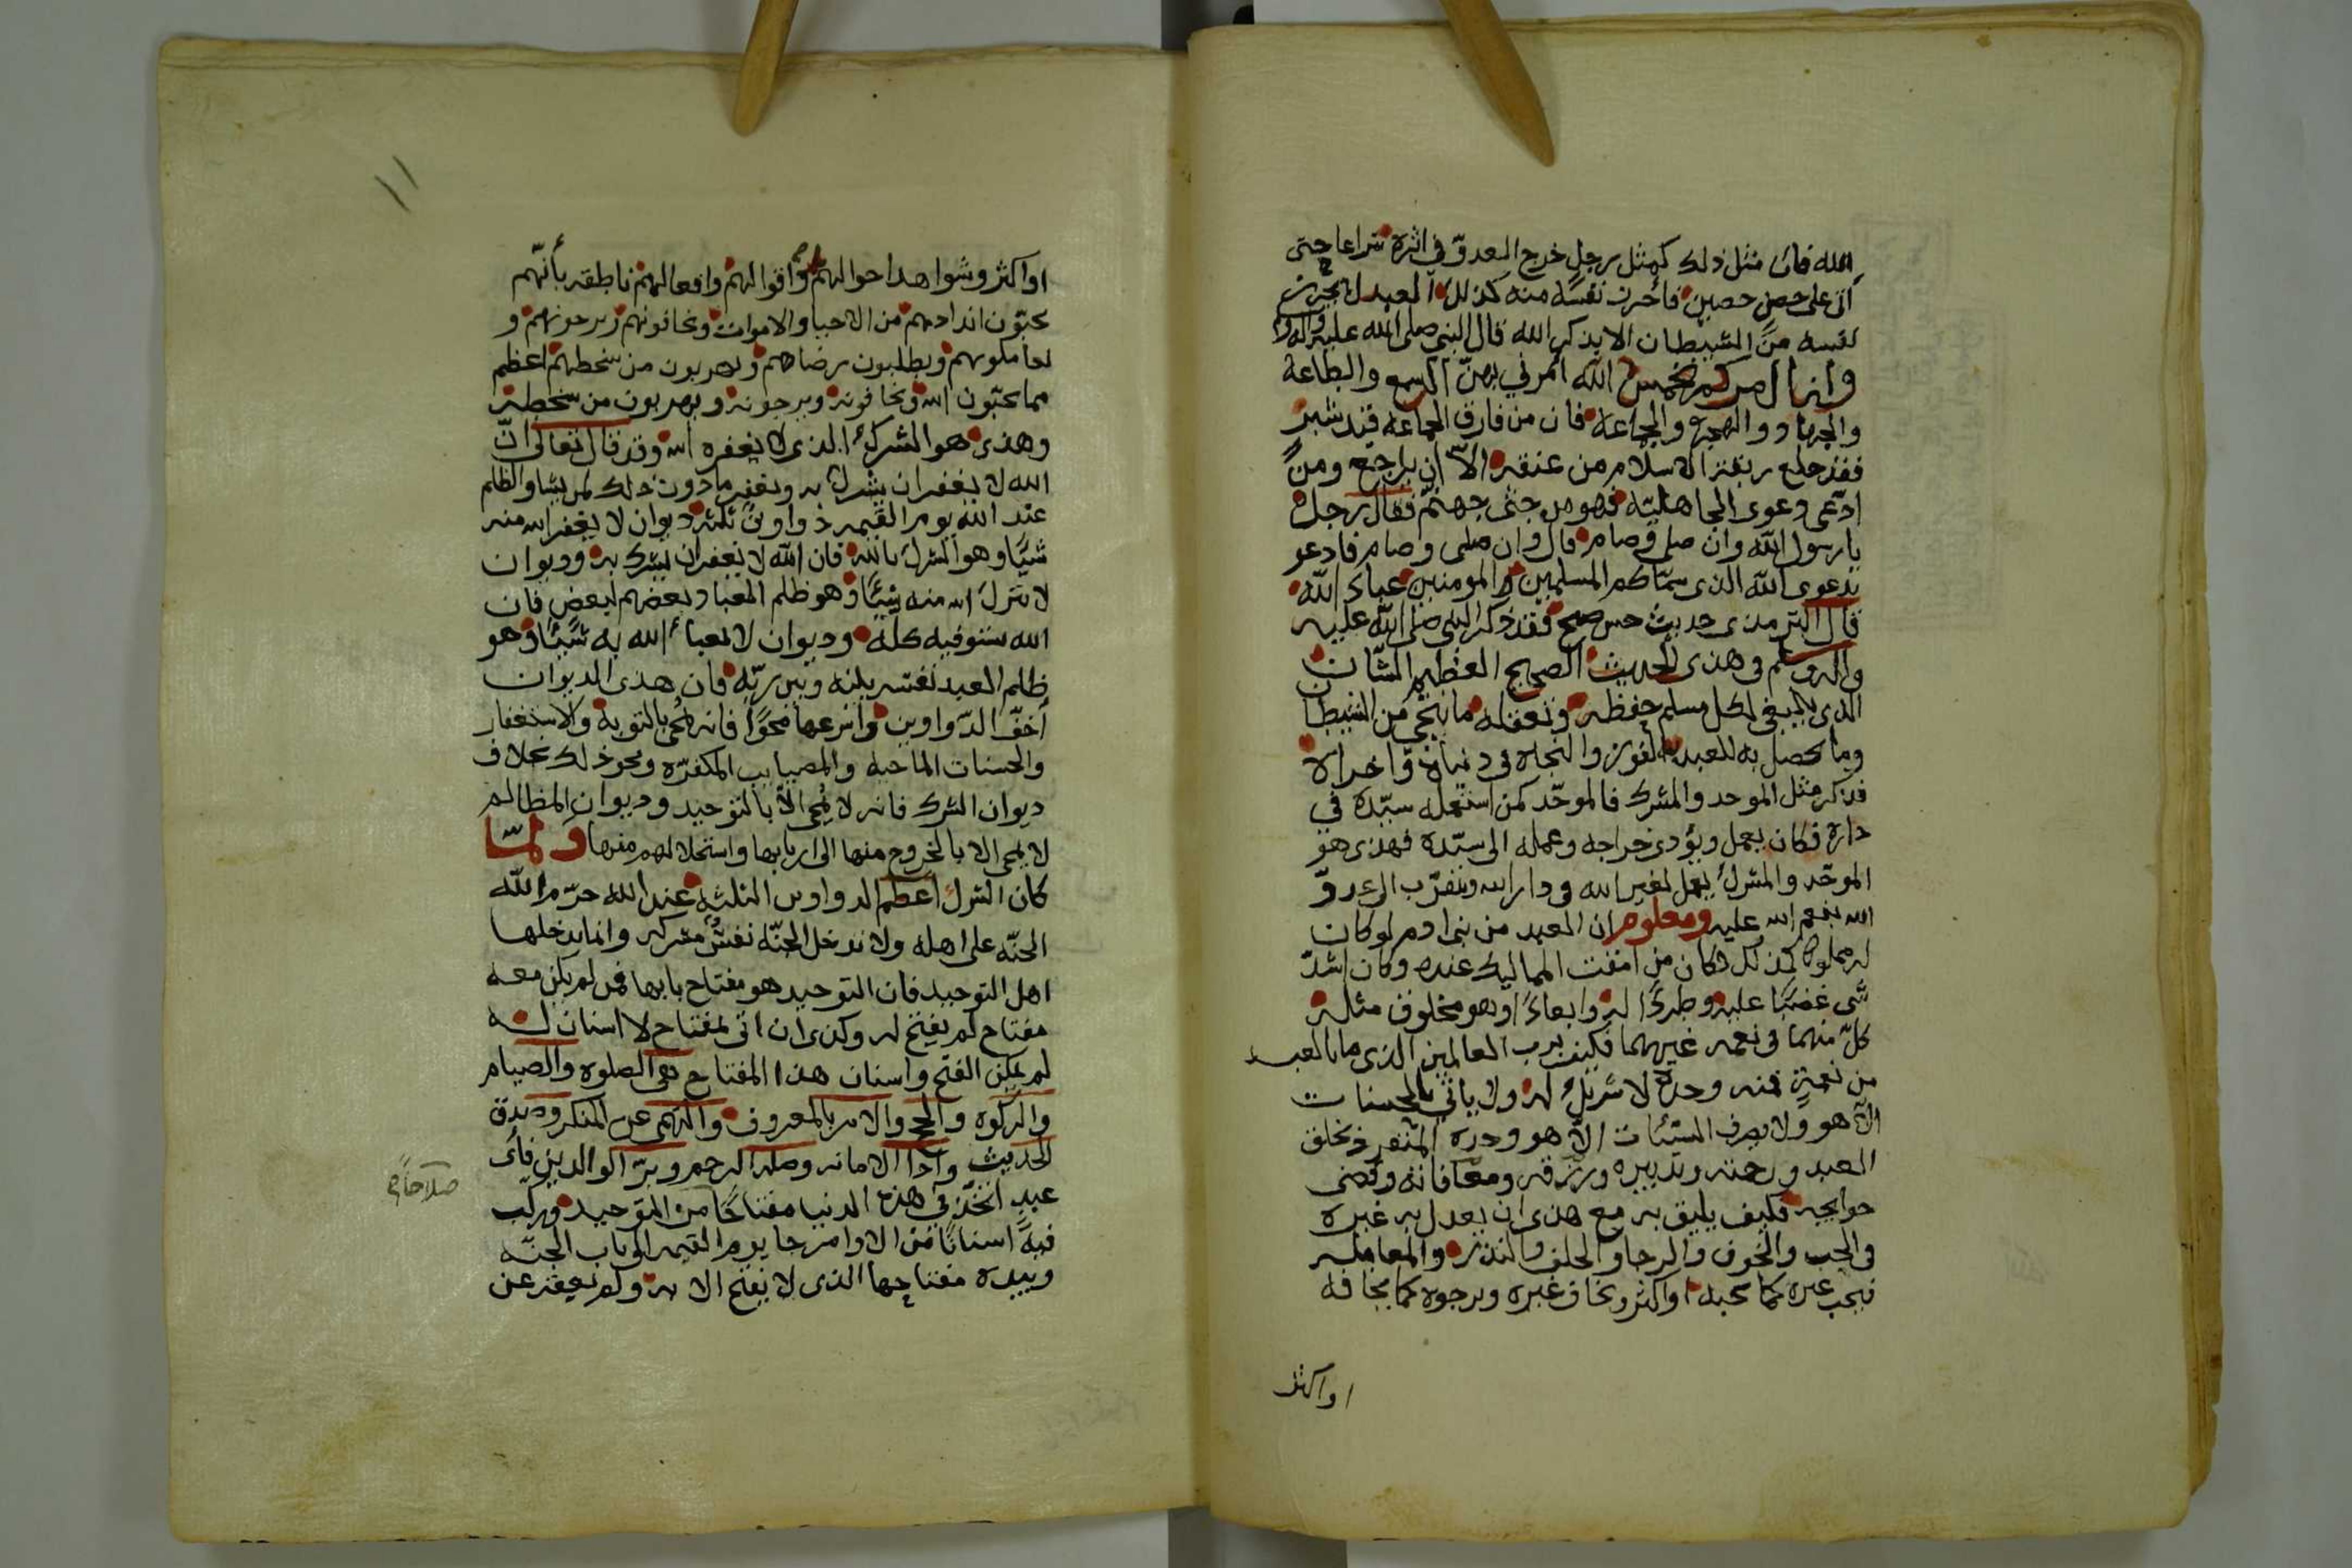 الله فان مثل ذلك كمثل رجل خرج العدوّ في اثره سراعا حتى
أتى على حصن حصين فأحرز نفسه منه كذلك العبد لا يحرز
نفسه من الشيطان الا بذكر الله قال النبي صلى الله عليه واله
وانا امركم بخمس الله أمرني بهنّ السمع والطاعة
والجهاد والهجرة والجماعة فان من فارق الجماعة قيد شبر
فقد خلع ربقة الاسلام من عنقه الاّ ان يراجع ومن
ادّعى دعوى الجاهليّه فهو من جثى جهنّم فقال رجل
يا رسول الله وان صلى وصام قال وان صلى وصام فادعو
بدعوى الله الذى سمّاكم المسلمين المومنين عباد الله
قال الترمذى حديث حسن صحيح فقد ذكر النبي صلى الله عليه
واله وسلم فى هذى الحديث الصحيح العظيم الشّان
الذى ينبغى لكل مسلم حفظه وتعقله ما ينجي من الشيطان
وما يحصل به للعبد الفوز والنجاة فى دنياه واخراه
فذكر مثل الموحد والمشرك فالموحّد كمن استعمله سيّده في
داره فكان يعمل ويؤدى خراجه وعمله الى سيّده فهذى هو
الموحّد والمشرك يعمل لغير الله فى دار الله ويتقرّب الى عدوّ
الله بنعم الله عليه ومعلوم ان العبد من بنى ادم لو كان
له مملوك كذلك لكان من امقت المماليك عنده وكان اشدّ
شى غضبًا عليه وطردًا له وابعادًا وهو مخلوق مثله
كلّ منهما فى نعمة غيرهما فكيف برب العالمين الذى ما بالعبد
من نعمةٍ فمنه وحدة لا شريك له ولا ياتي بالحسنات
الاّ هو ولا يصرف السيّئات الاّ هو وحده المتفرد بخلق
العبد ورحمته وتدبيره ورزقه ومعافاته وقضى
حوايجه فكيف يليق به مع هذى ان يعدل به غيره
فى الحب والخوف والرجا والحلف والنذر والمعاملة
فيحب غيره كما يحبه او اكثر ويخاف غيره ويرجوه كما يخافه
او اكثر
١١
او اكثر وشواهد احوالهم واقوالهم وافعالهم ناطقه بأنّهم
يحبّون اندادهم من الاحيا والاموات ويخافونهم ويرجونهم و
يعاملونهم ويطلبون رضاهم ويهربون من سخطهم اعظم
مما يحبّون الله ويخافونه ويرجونه ويهربون من سخطه
وهذى هو الشرك الذى لا يغفره الله وقد قال تعالى انّ
الله لا يغفر ان يشرك به ويغفر ما دون ذلك لمن يشا والظلم
عند الله يوم القيمه دواوين ثلثه ديوان لا يغفر الله منه
شيًا وهو الشرك بالله فان الله لا يغفر ان يشرك به وديوان
لا يترك الله منه شيئًا وهو ظلم العباد بعضهم لبعض فان
الله يستوفيه كله وديوان لا يعبأ الله به شيئًا وهو
ظلم العبد نفسه بينه وبين ربّه فان هذى الديوان
أخفّ الدّواوين واسرعها محوًا فانه يُمحى بالتوبه والاستغفار
والحسنات الماحيه والمصايب المكفّره ونحو ذلك بخلاف
ديوان الشرك فانه لا يُمحى الاّ بالتوحيد وديوان المظالم
لا يمحى الا بالخروج منها الى اربابها واستحلالهم منها ولمّا
كان الشرك أعظم الدواوين الثلثه عند الله حرّم الله
الجنّه على اهله ولا تدخل الجنّه نفسٌ مشركه وانما يدخلها
اهل التوحيد فان التوحيد هو مفتاح بابها فمن لم يكن معه
مفتاح لم يفتح له وكذى ان اتى بمفتاح لا اسنان له
لم يمكن الفتح واسنان هذا المفتاح هى الصلوه والصيام
والزكوه والحج والامر بالمعروف والنهى عن المنكر وصدق
الحديث وأدا الامانه وصله الرحم وبرّ الوالدين فأى
عبدٍ اتخذ في هذه الدنيا مفتاحًا من التوحيد وركب
فيه اسنانًا من الاوامر جا يوم القيمه الى باب الجنّه
وبيده مفتاحها الذى لا يفتح الا به ولم يعقه عن